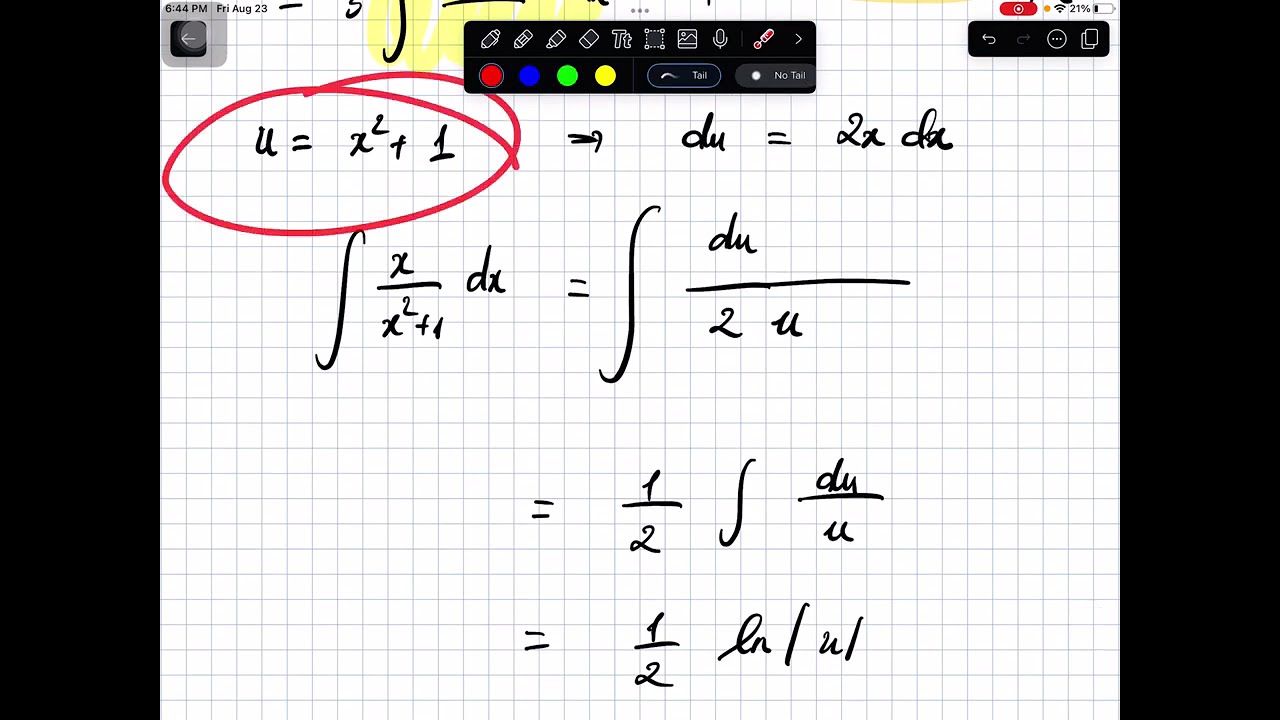 6:44 PM Fri Aug 23
21%
Tt
Tail No Tail
u = x² + 1 ⇒ du = 2x dx
∫ x/(x²+1) dx = ∫ du/(2 u)
= 1/2 ∫ du/u
= 1/2 ln|u|